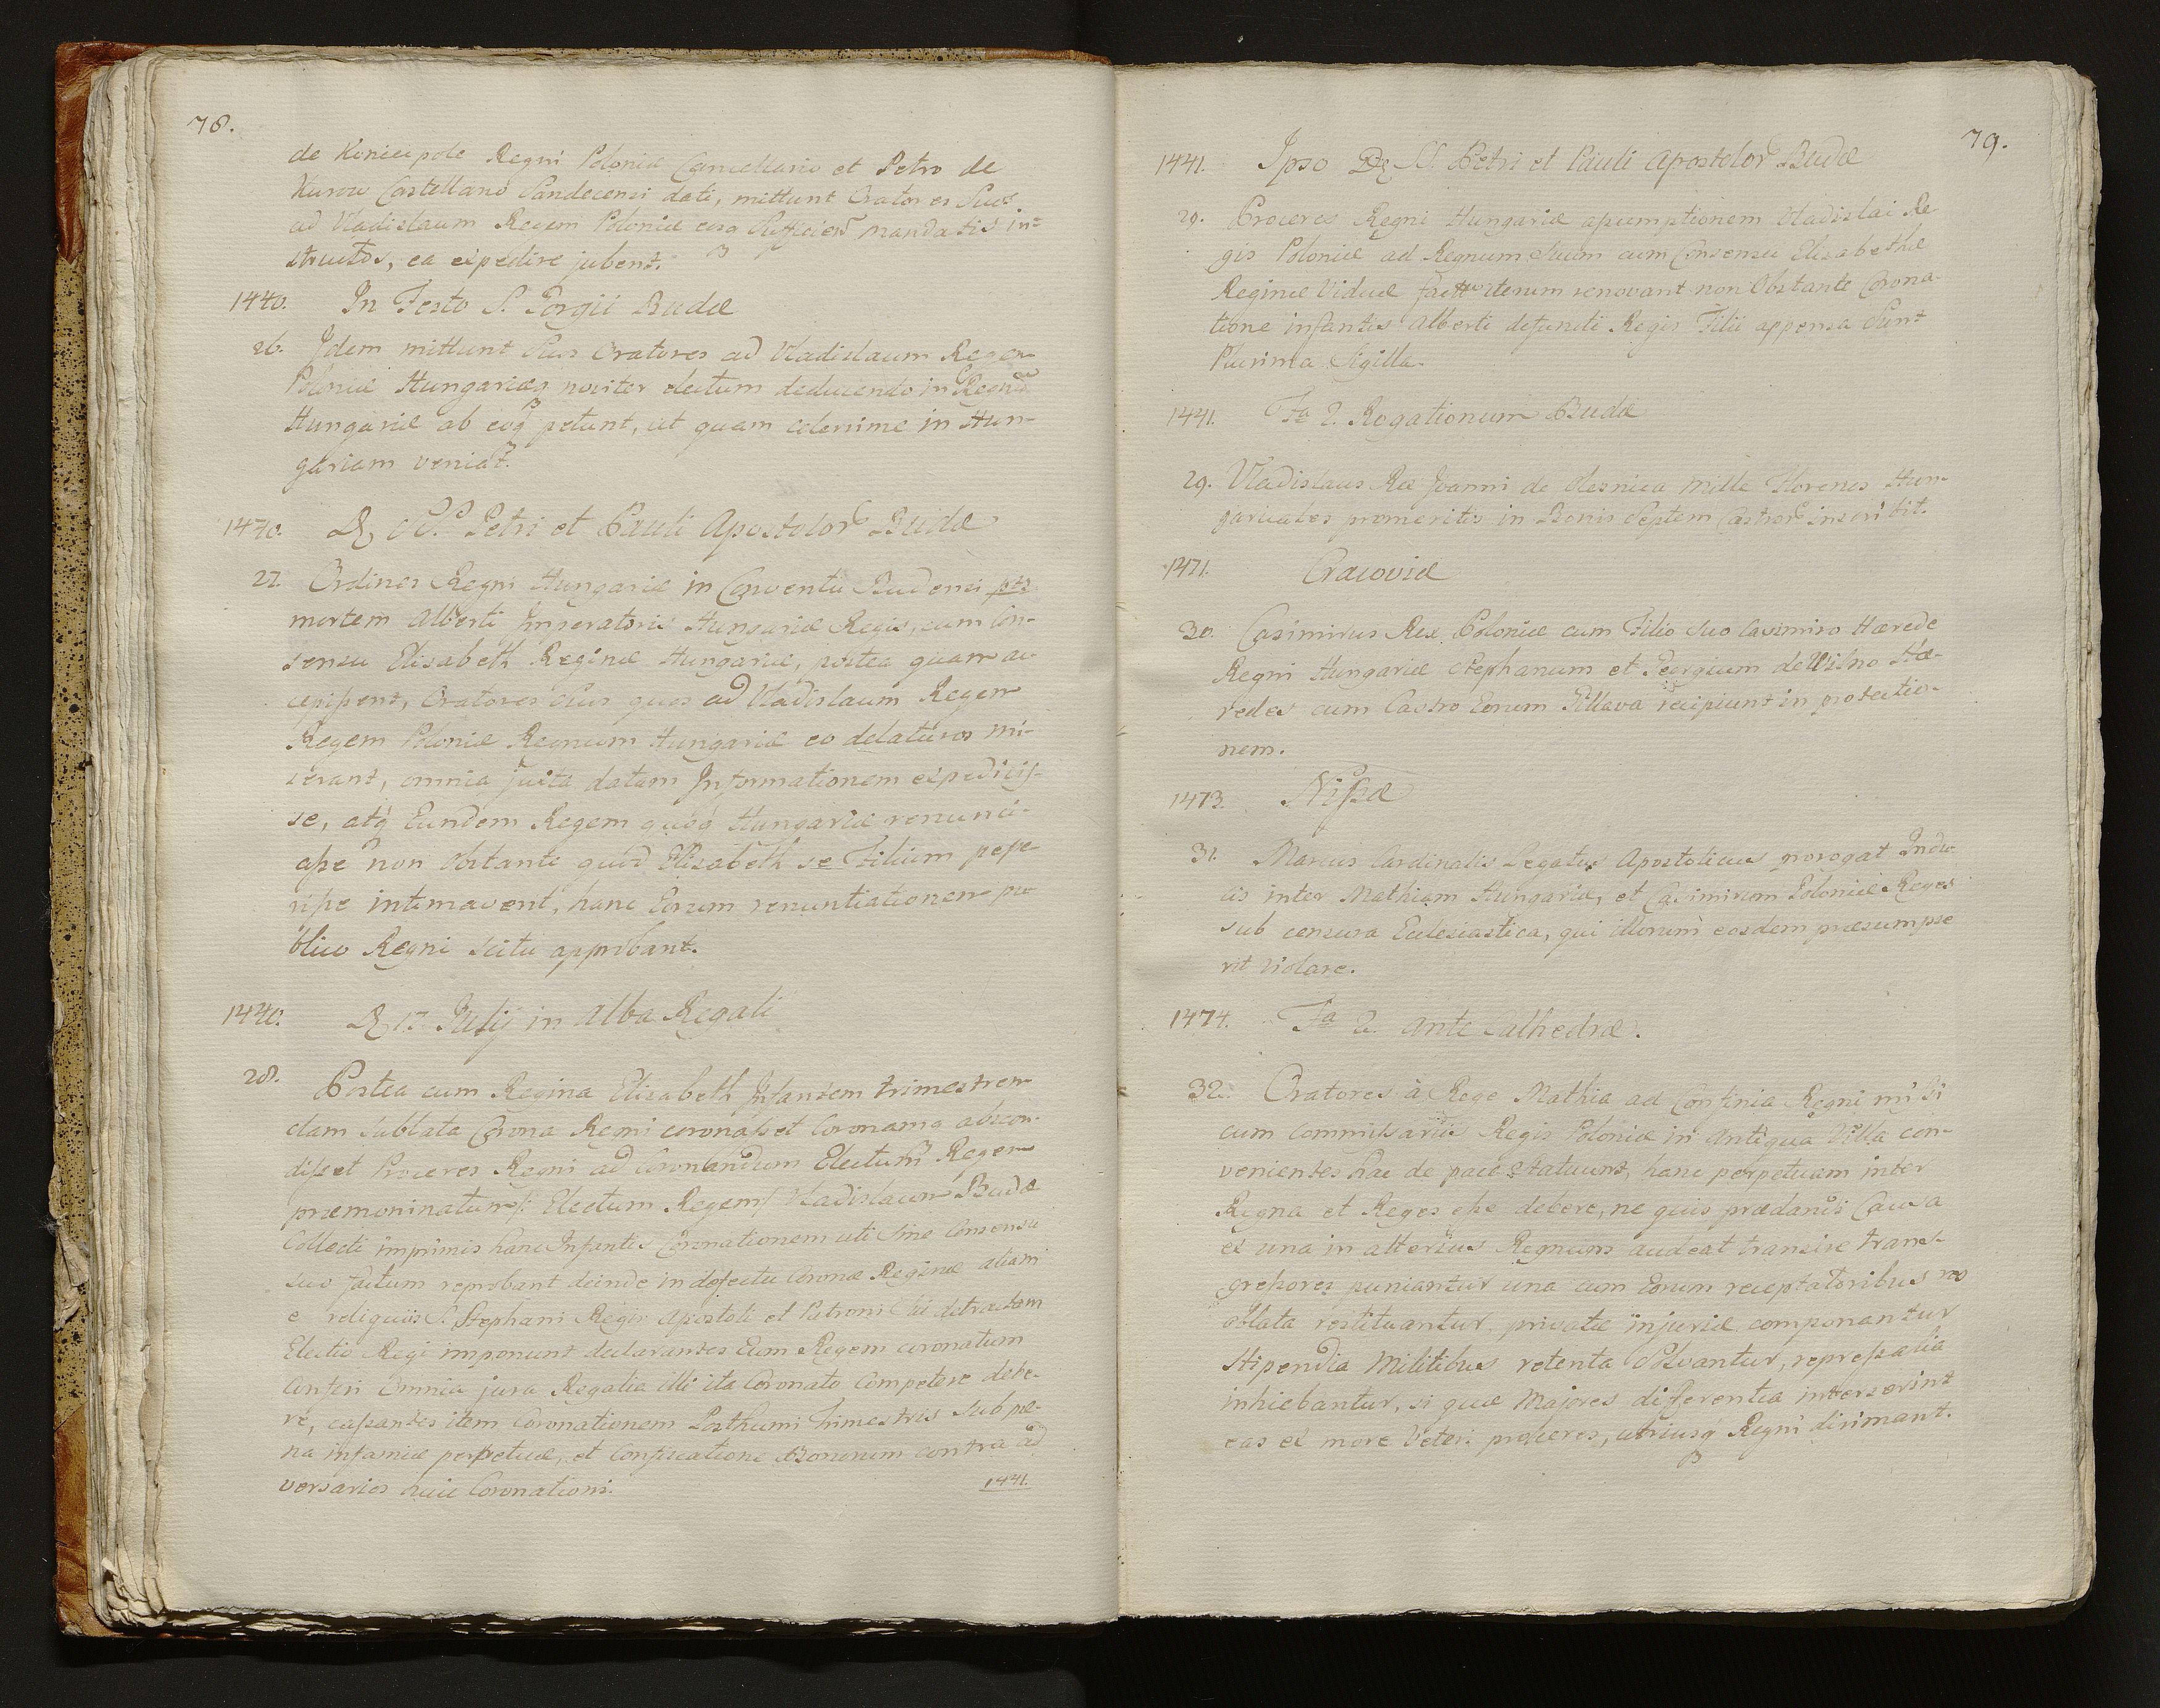 78.
de Koniecpole Regni Poloniæ Cancellario et Petro de
Kurow Castellano Sandecensi dati, mittunt Oratores Suos
ad Vladislaum Regem Poloniæ eosq Sufficien mandatis in=
structos, ea expedire jubent.
1440. In Festo S. Gorgii Budæ
26. Idem mittunt Suos Oratores ad Vladislaum Regem
Poloniæ Hungariæq noviter electum deducendo in Regnũ
Hungariæ ab eoq petunt, ut quam celerrime in Hun-
gariam veniat.
1440. D SS. Petri et Pauli Apostolor Budæ
27. Ordines Regni Hungariæ in Conventu Budensi pt
mortem Alberti Imperatoris Hungariæ Regis, cum Con-
sensu Elisabeth Reginæ Hungariæ, postea quam ac-
cepissent, Oratores Suos quos ad Vladislaum Regem
Regem Poloniæ Regnum Hungariæ eo delaturos mi-
serant, omnia juxta datam Informationem expedivis-
se, atq Eundem Regem quoq Hungariæ renunci-
asse non obstante quod Elisabeth se Filium pepe-
risse intimaverit, hanc Eorum renuntiationem pu-
blico Regni scitu approbant.
1440. D 17 Julij in Alba Regali
28. Postea cum Regina Elisabeth Infantem trimestrem
clam sublata Corona Regni coronasset Coronamq abscon-
disset Proceres Regni ad Coronandum Electum Regem
præmoninatum /: Electum Regem / Vladislaum Budæ
Collecti imprimis hanc Infantis Coronationem uti Sine Consensu
suo factum reprobant deinde in defectu Coronæ Reginæ aliam
e reliquiis S. Stephani Regis Apostoli et Patroni Sui detractam
Electio Regi imponunt declarantes Eum Regem coronatum
Conferi Omnia jura Regalia illi ita Coronato Competere debe-
re, cassantes item Coronationem Posthumi Trimestris sub pæ-
na infamiæ perpetuæ, et Confiscatione Bonorum contra ad
versarios huic Coronationi.
1441.
79.
1441. Ipso D SS. Petri et Pauli Apostolor Budæ
29. Proceres Regni Hungariæ assumptionem Vladislai Re
gis Poloniæ ad Regnum Suum cum Consensu Elisabethæ
Reginæ Viduæ iterum renovant non Obstante Corona-
tione infantis Alberti defuncti Regis Filii appensa Sunt
Plurima Sigilla.
1441. Fa 2. Rogationum Budæ
29. Vladislaus Rex Joanni de Olesnica Mille Florenos Hun-
garicales promeritis in Bonis Septem Castror inscribit.
1471. Cracoviæ
30. Casimirus Rex Poloniæ cum Filio Suo Casimiro Hærede
Regni Hungariæ Stephanum et Georgium de Hæ-
redes cum Castro Eorum Fillava recipiunt in protectio-
nem.
1473. Nissæ
31. Marcus Cardinalis Legatus Apostolicus prorogat Indu-
cis inter Mathiam Hungariæ, et Casimirum Poloniæ Reges
sub censura Ecclesiastica, qui illorum eosdem præsumpse
rit violare.
1474. Fa 2. ante Cathedræ.
32. Oratores à Rege Mathia ad Confinia Regni missi
cum Commissariis Regis Poloniæ in Antiqua Villa con-
venientes hac de pace statuunt, hanc perpetuam inter
Regna et Reges esse debere, ne quis prædandi Causa
ex una in alterius Regnum audeat transire trans-
gressores puniantur una cum Eorum receptatoribus res
ablata restituantur, privatæ injuriæ componantur
Stipendia Militibus retenta Solvantur, repressalia
inhiebantur, si quæ Majores differentia interserint
eas ex more Veteri proceres, utriusq Regni dirimant.